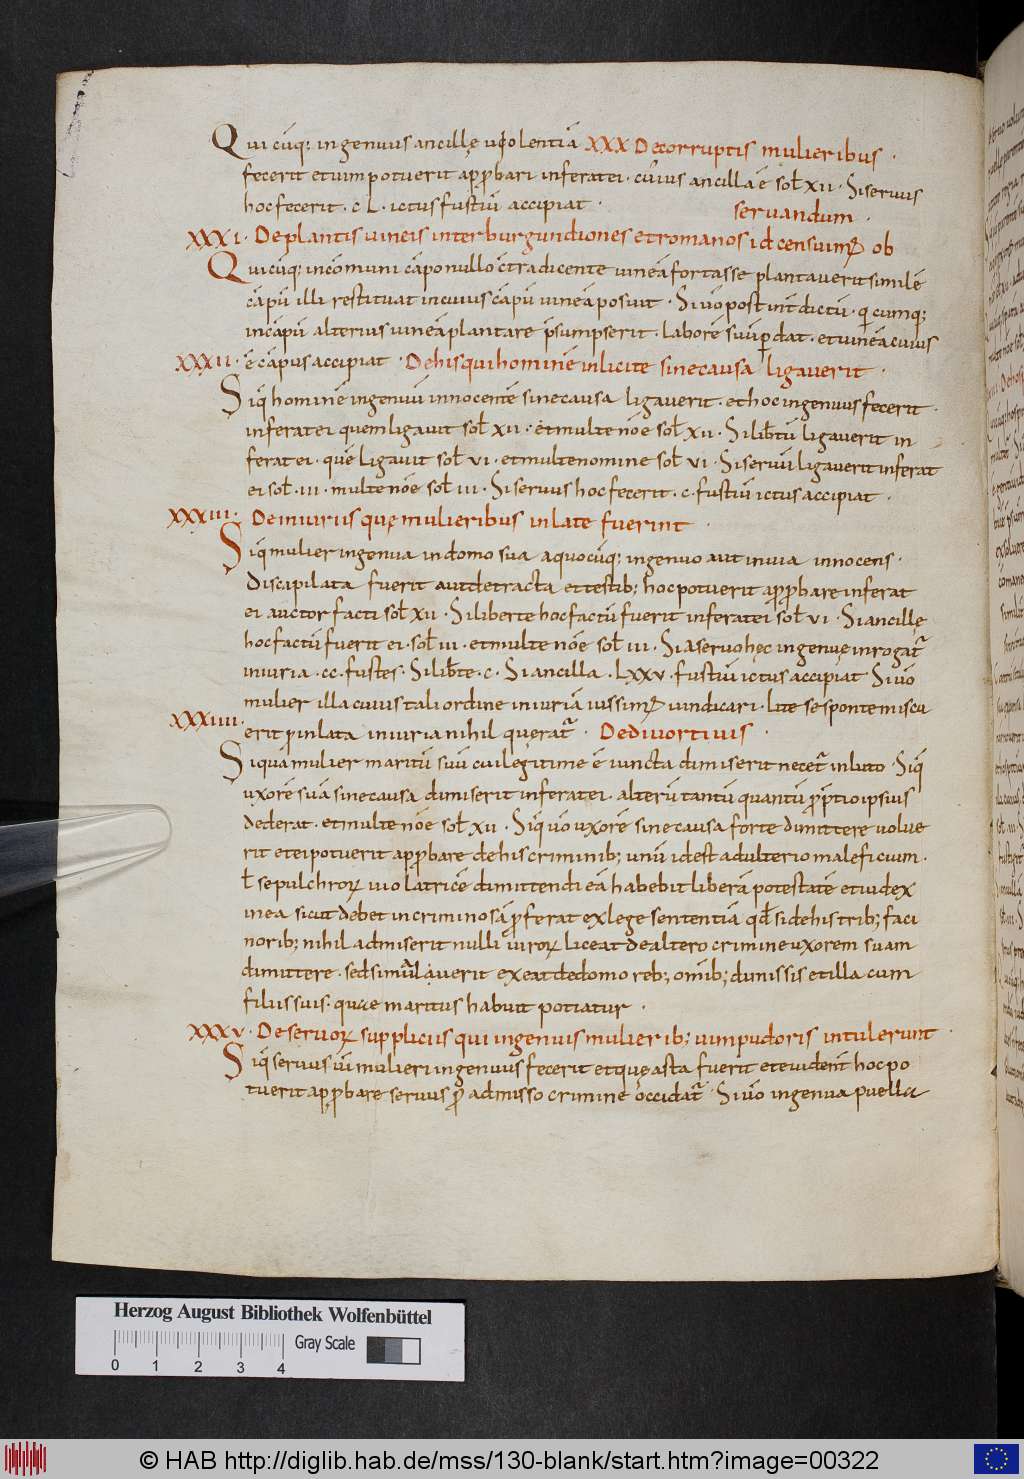 Quicūq; ingenuus ancillę uiolentiā XXX Decorruptis mulieribus ·
fecerit et uim potuerit adp̱bari inferat ei · cuius ancilla ē sot xii · Si seruus
hoc fecerit · cL · ictus fustiū accipiat ·
seruandum ·
XXXI · De plantis uineis inter burgundiones et romanos id censuim; ob
Quicūq; in cōmuni cāpo nullo c̄tradicente uineā fortasse plantauerit similē
cāpū illi restituat in cuius cāpū uineā posuit · Si uō post int̄dictū · qicumq;
in cāpū alterius uineā plantare p̄sumpserit · laborē suū ꝑdat · et uineā cuius
XXXII · ē cāpus accipiat · De his qui hominē inlicite sine causa ligauerit ·
Siq̄ hominē ingenuū innocentē sine causa ligauerit · et hoc ingenuus fecerit ·
inferat ei quem ligauit sot xii · et multe nōe sot xii · Si libtū ligauerit in
ferat ei · quē ligauit sot vi · et multe nomine sot vi · Si seruū ligauerit inferat
ei sot · iii · multe nōe sot iii · Si seruus hoc fecerit · c · fustiū ictus accipiat ·
XXXIII · De iniuriis quę mulieribus inlate fuerint ·
Siq̄ mulier ingenua in domo sua a quocūq; ingenuo aut in uia innocens ·
discipilata fuerit aut detracta et testib; hoc potuerit adp̱bare inferat
ei auctor facti sot xii · Si liberte hoc factū fuerit inferat ei sot vi · Si ancille
hoc factū fuerit ei · sot iii · et multe nōe sot iii · Si a seruo hęc ingenuę inrogat̄
iniuria · cc · fustes · Si libte · c · Si ancilla · Lxxv · fustiū ictus accipiat Si uō
mulier illa cuius tali ordine iniuriā iussim; uindicari · lite se sponte miscu
XXXIIII · erit p inlata iniuria nihil querat̄ · De diuortiuis ·
Si qua mulier maritū suū cui legitime ē iuncta dimiserit necet̄ in luto · Siq̄
uxorē suā sine causa dimiserit inferat ei · alterū tantū quantū p̱ p̄tio ipsius
dederat · et multe nōe sot xii · Siq̄ uō uxorē sine causa forte dimittere uolue
rit et ei potuerit adp̱bare de his criminib; unū id est adulterio maleficium ·
t sepulchroꝝ uiolatricē dimittendi eā habebit liberā potestatē et iudex
in ea sicut debet in criminosā p̱ferat ex lege sententiā qđ si de his trib; faci
norib; nihil admiserit nulli uiroꝝ liceat de altero crimine uxorem suam
dimittere · sed si mal auerit exeat de domo reb; omīb; dimissis et illa cum
filiis suis · quae maritus habuit potiatur ·
XXXV · De seruoꝝ suppliciis qui ingenuis mulierib; uim pudoris intulerunt ·
Siq̄ seruus uī mulieri ingenuus fecerit et questa fuerit et euident̄ hoc po
tuerit adp̱bare seruus p̱ admisso crimine occidat̄ · Si uō ingenua puella
Herzog August Bibliothek Wolfenbüttel
Gray Scale
0 1 2 3 4
© HAB http://diglib.hab.de/mss/130-blank/start.htm?image=00322